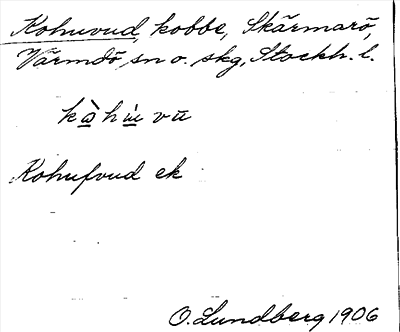 Kohuvud, kobbe, Skärmarö,
Värmdö, sn o. skg, Stockh. l.
kàhu̇ vū
Kohufvud ek
O. Lundberg 1906